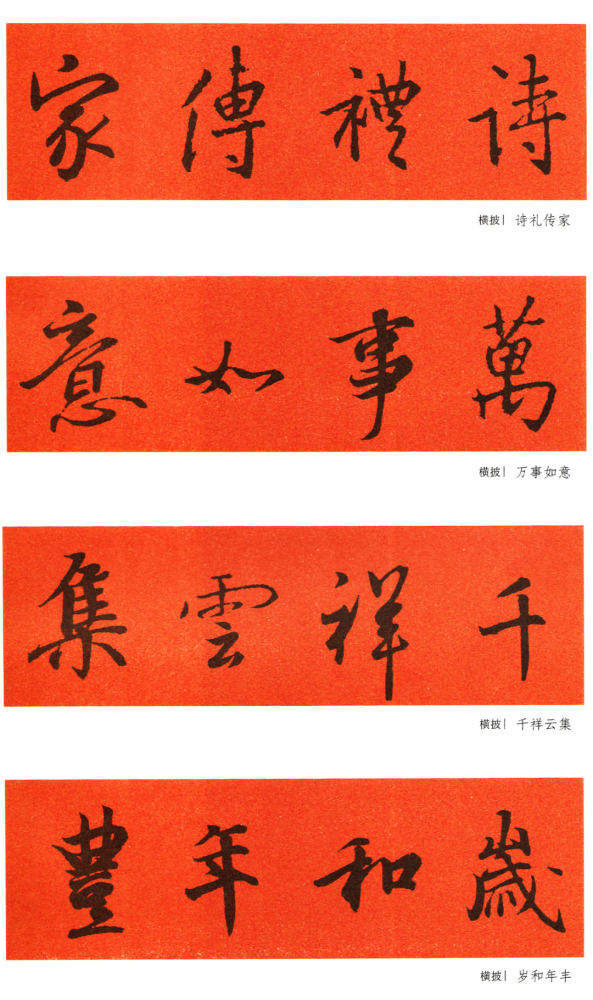 詩禮傳家
横披| 诗礼传家
萬事如意
横披| 万事如意
千祥雲集
横披| 千祥云集
歲和年豐
横披| 岁和年丰